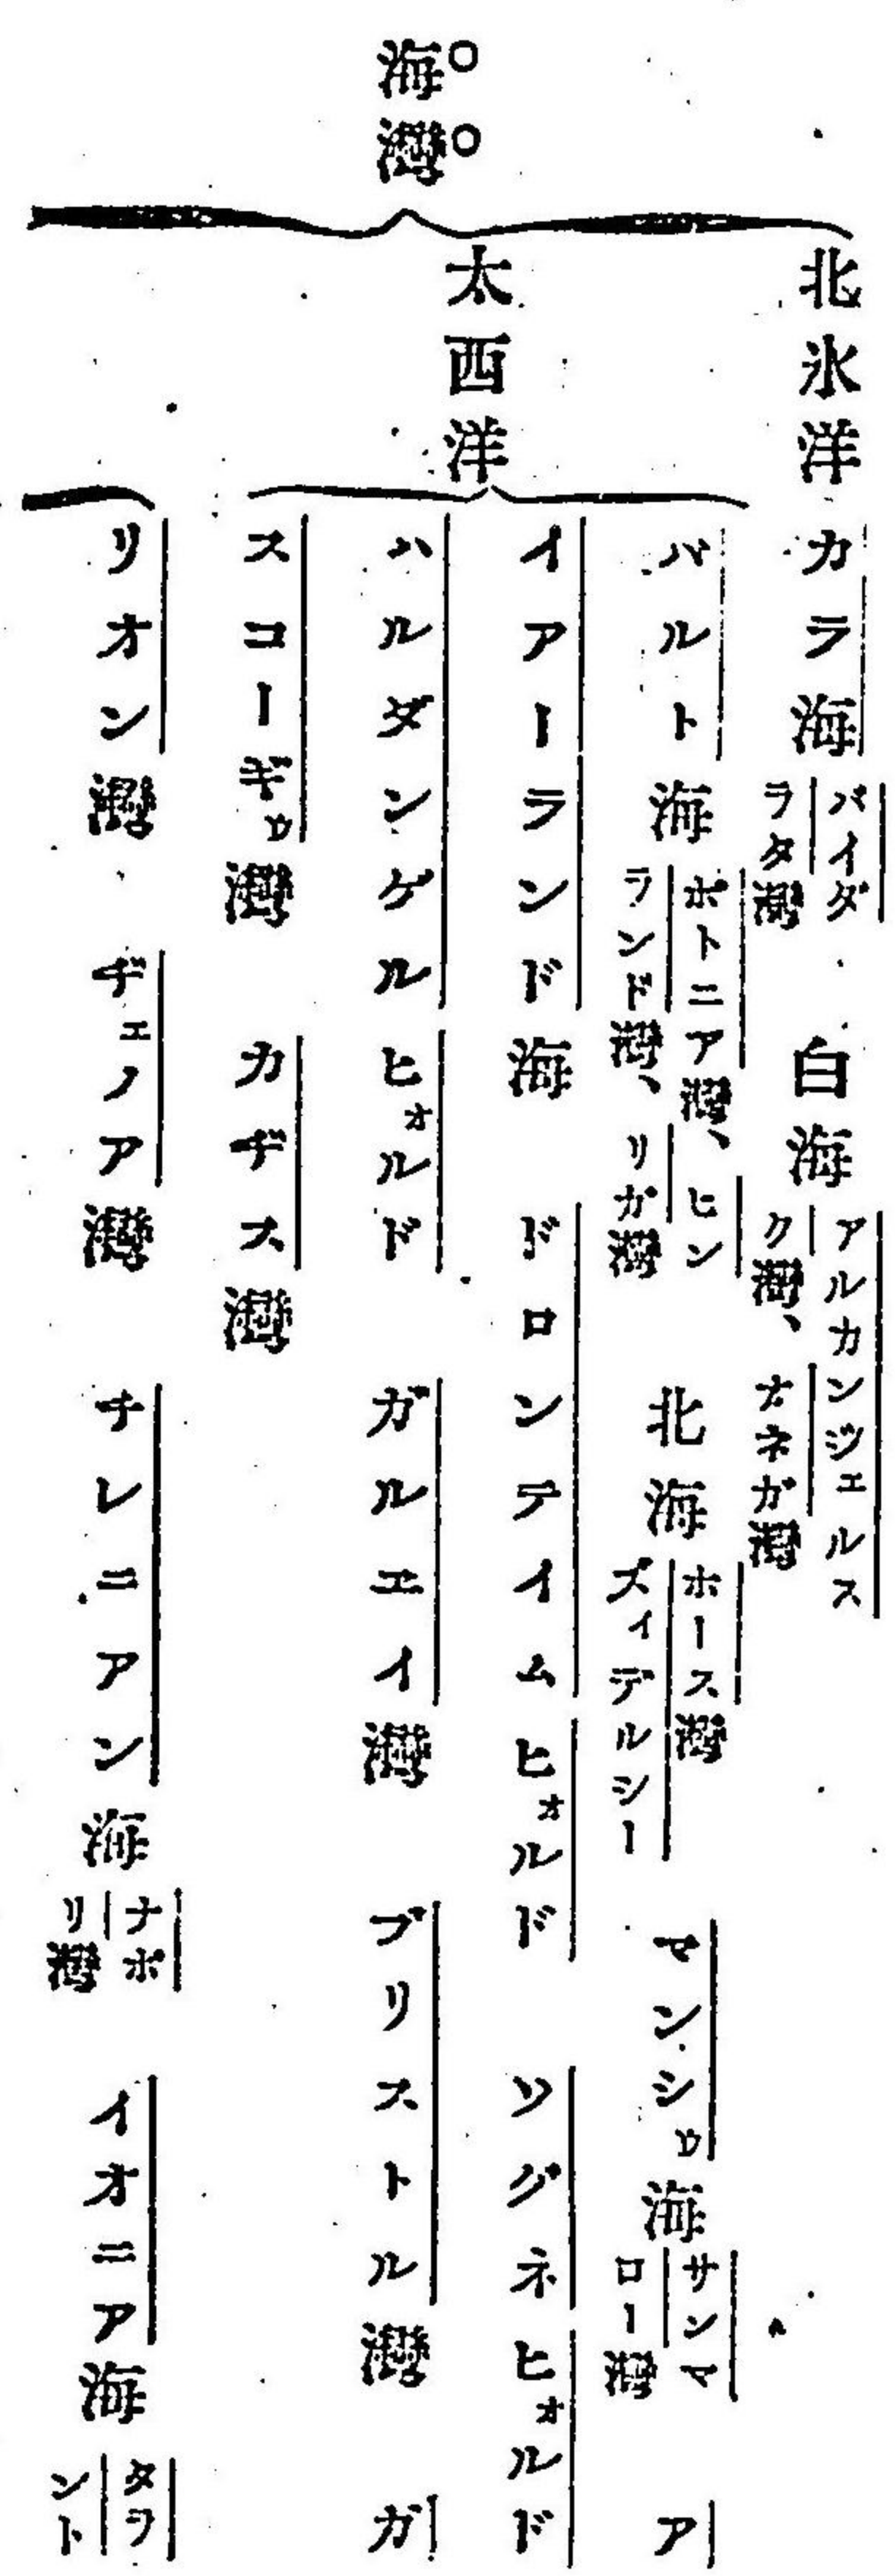 海灣
北氷洋 カラ海 バイダラタ灣 白海 アルカンジェルスク灣、オネガ灣
太西洋
バルト海 ボトニア灣、ヒンランド灣、リガ灣 北海 ホース灣 ズィデルシー マンシゥ海 サンマロー灣 ア
イアーランド海 ドロンテイムヒォルド ソグネヒォルド
ハルダンゲルヒォルド ガルエイ灣 ブリストル灣 ガ
スコーギゥ灣 カヂス灣
リオン灣 ヂェノア灣 チレニアン海 ナポリ灣 イオニア海 タラント